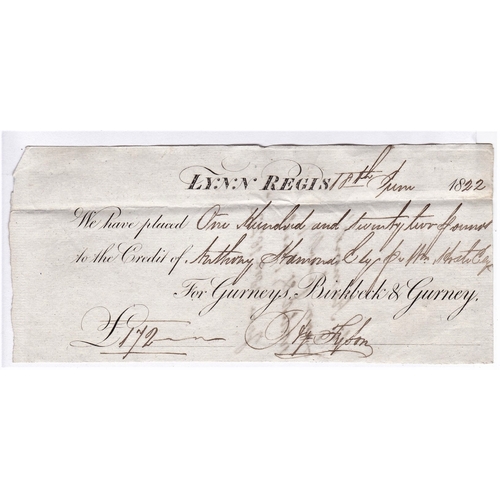 LYNN REGIS 18th June 1822
We have placed One Hundred and twenty two pounds
to the Credit of Anthony Hamond Esq
For Gurneys, Birkbeck & Gurney.
£172